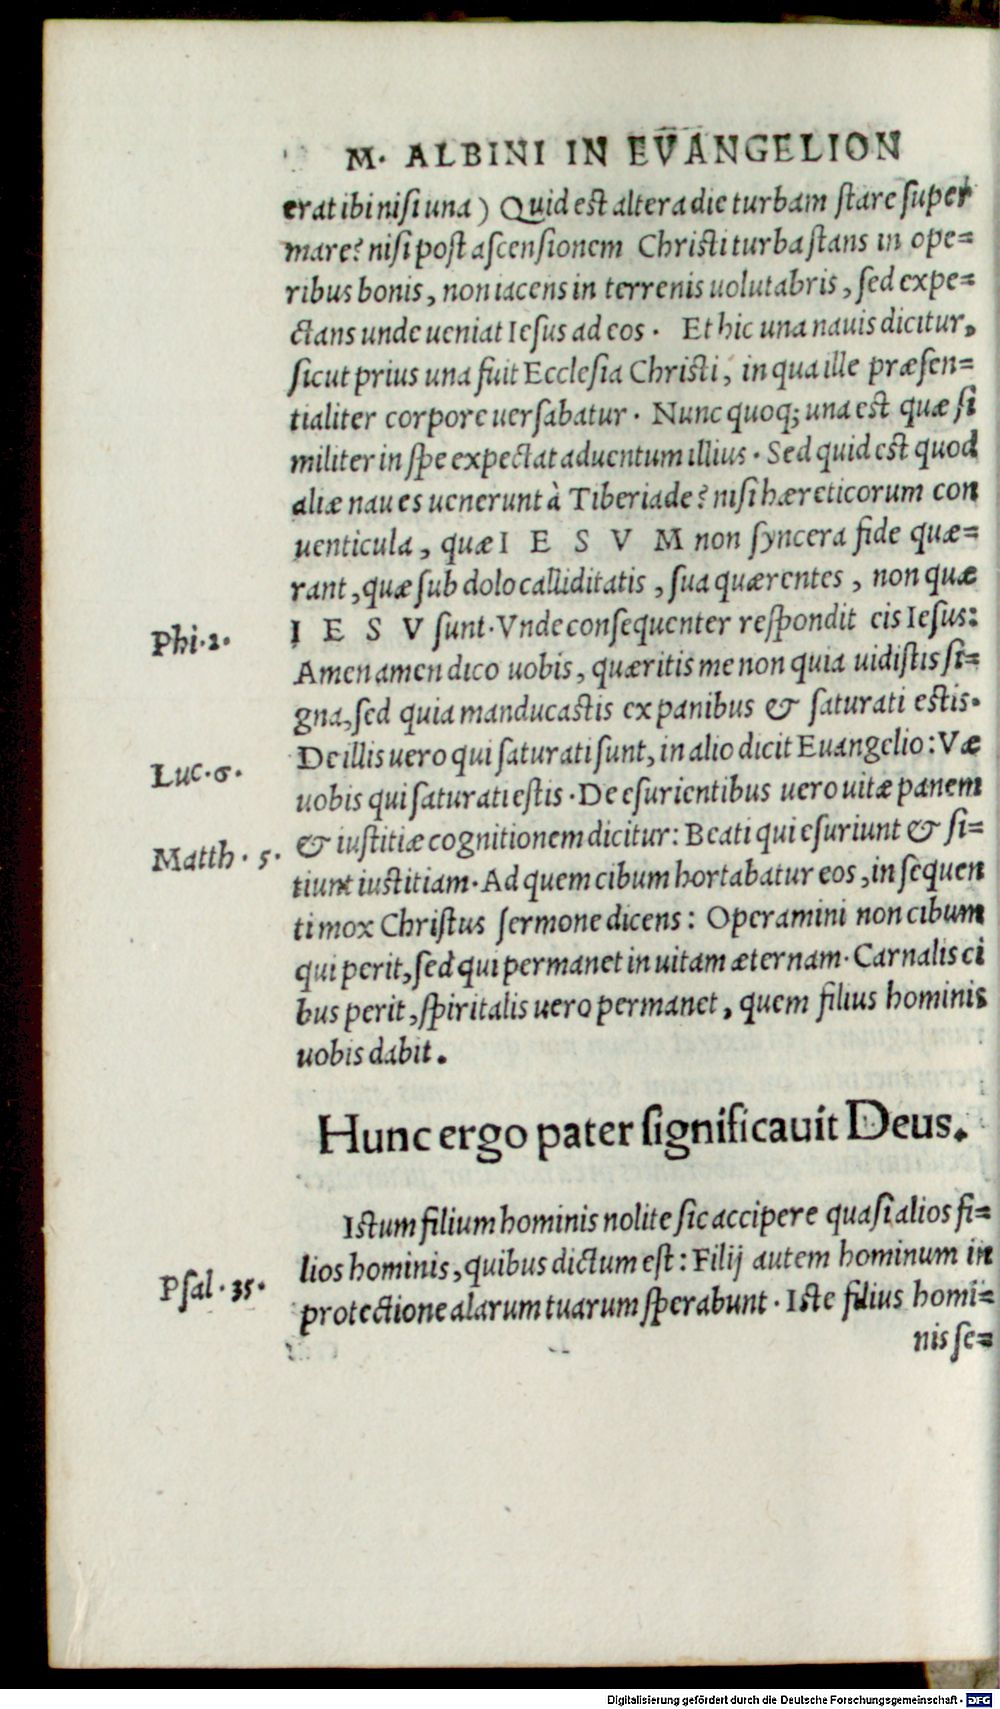 M. ALBINI IN EVANGELION
erat ibi nisi una) Quid est altera die turbam stare super
mare? nisi post ascensionem Christi turba stans in ope=
ribus bonis, non iacens in terrenis uolutabris, sed expe=
ctans unde ueniat Iesus ad eos. Et hic una nauis dicitur,
sicut prius una fuit Ecclesia Christi, in qua ille præsen=
tialiter corpore uersabatur. Nunc quoq; una est quæ si
militer in spe expectat aduentum illius. Sed quid est quod
aliæ naues uenerunt à Tiberiade? nisi hæreticorum con
uenticula, quæ I E S V M non syncera fide quæ=
rant, quæ sub dolo calliditatis, sua quærentes, non quæ
Phi. 2. I E S V sunt. Vnde consequenter respondit eis Iesus:
Amen amen dico uobis, quæritis me non quia uidistis si=
gna, sed quia manducastis ex panibus & saturati estis.
Luc. 6. De illis uero qui saturati sunt, in alio dicit Euangelio: Væ
uobis qui saturati estis. De esurientibus uero uitæ panem
Matth. 5. & iustitiæ cognitionem dicitur: Beati qui esuriunt & si=
tiunt iustitiam. Ad quem cibum hortabatur eos, in sequen
ti mox Christus sermone dicens: Operamini non cibum
qui perit, sed qui permanet in uitam æternam. Carnalis ci
bus perit, spiritalis uero permanet, quem filius hominis
uobis dabit.
Hunc ergo pater significauit Deus.
Istum filium hominis nolite sic accipere quasi alios fi=
lios hominis, quibus dictum est: Filij autem hominum in
Psal. 35. protectione alarum tuarum sperabunt. Iste filius homi=
nis se=
Digitalisierung gefördert durch die Deutsche Forschungsgemeinschaft - DFG